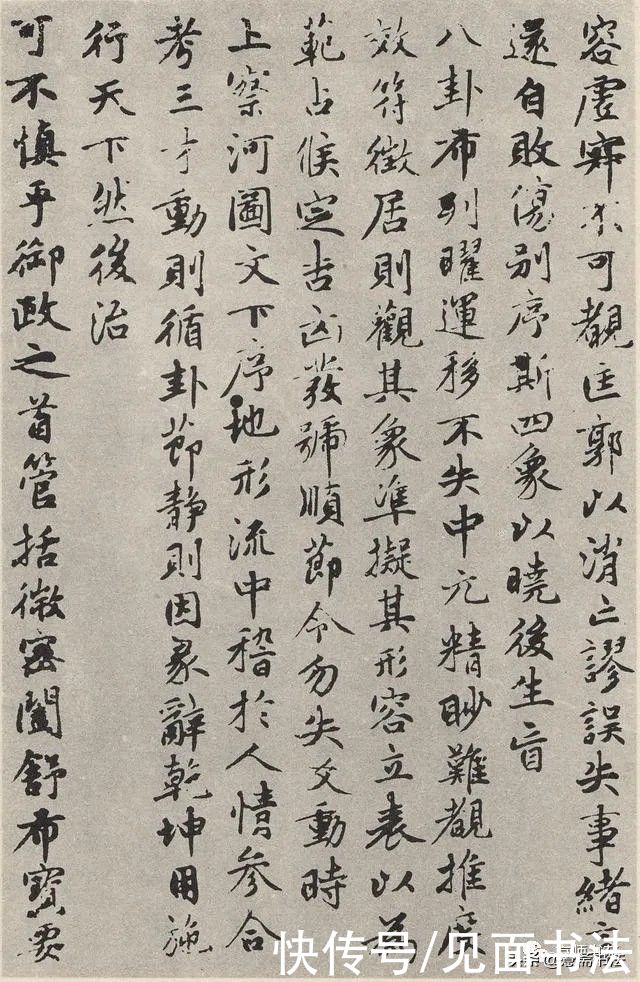 容虚寂不可覩匡郭以消亡謬誤失事緒言
還自敗傷别序斯四象以曉後生盲
八卦布列曜運移不失中元精眇難覩推度
效符徵居則觀其象準擬其形容立表以為
範占候定吉凶發號順節令勿失爻動時
上察河圖文下序地形流中稽於人情參合
考三才動則循卦節靜則因彖辭乾坤用施
行天下然後治
可不慎乎御政之首管括微密闓舒布寶要
快传号/见面书法